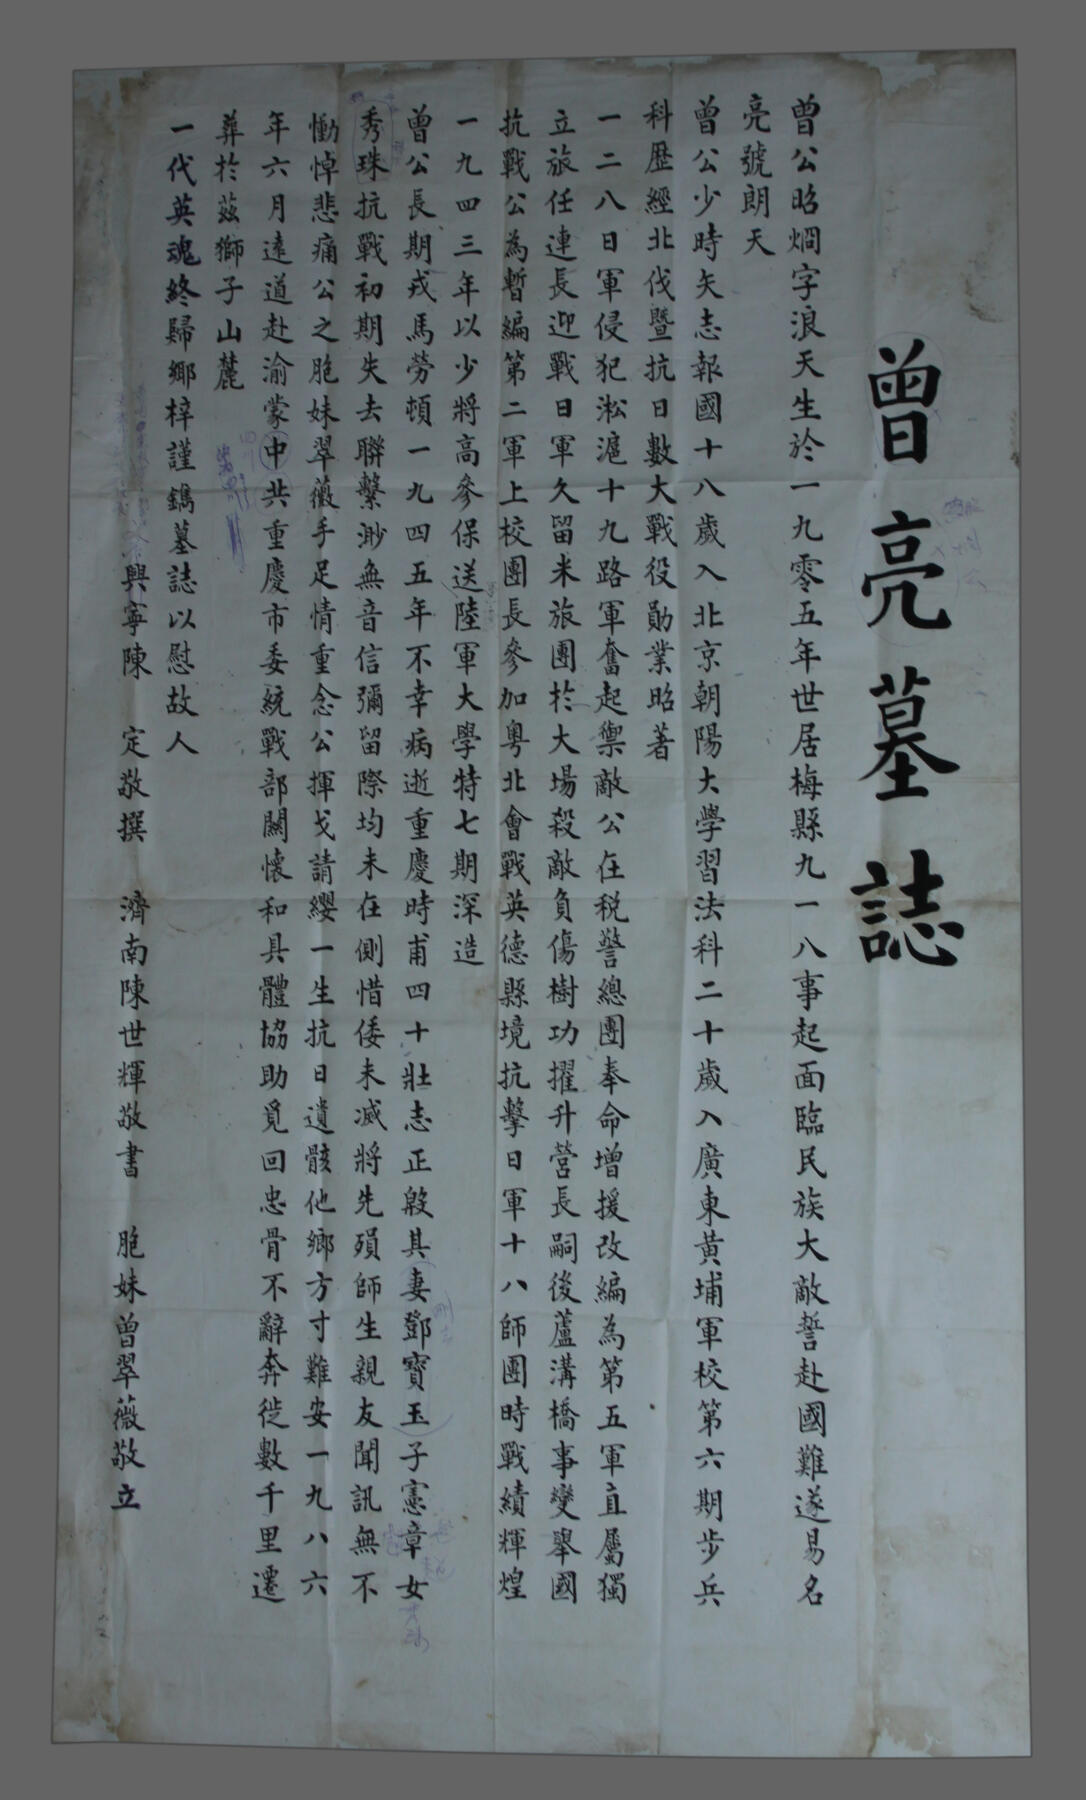 曾亮墓誌
曾公昭烱字浪天生於一九零五年世居梅縣九一八事起面臨民族大敵誓赴國難遂易名
亮號朗天
曾公少時矢志報國十八歲入北京朝陽大學習法科二十歲入廣東黃埔軍校第六期步兵
科歷經北伐暨抗日數大戰役勛業昭著
一二八日軍侵犯淞滬十九路軍奮起禦敵公在稅警總團奉命增援改編為第五軍直屬獨
立旅任連長迎戰日軍久留米旅團於大場殺敵負傷樹功擢升營長嗣後蘆溝橋事變舉國
抗戰公為暫編第二軍上校團長參加粵北會戰英德縣境抗擊日軍十八師團時戰績輝煌
一九四三年以少將高參保送陸軍大學特七期深造
曾公長期戎馬勞頓一九四五年不幸病逝重慶時甫四十壯志正殷其妻鄧寶玉子憲章女
秀珠抗戰初期失去聯繫渺無音信彌留際均未在側惜倭未滅將先殞師生親友聞訊無不
慟悼悲痛公之胞妹翠薇手足情重念公揮戈請纓一生抗日遺骸他鄉方寸難安一九八六
年六月遠道赴渝蒙中共重慶市委統戰部關懷和具體協助覓回忠骨不辭奔徙數千里遷
葬於茲獅子山麓
一代英魂終歸鄉梓謹鐫墓誌以慰故人
興寧陳 定敬撰 濟南陳世輝敬書 胞妹曾翠薇敬立